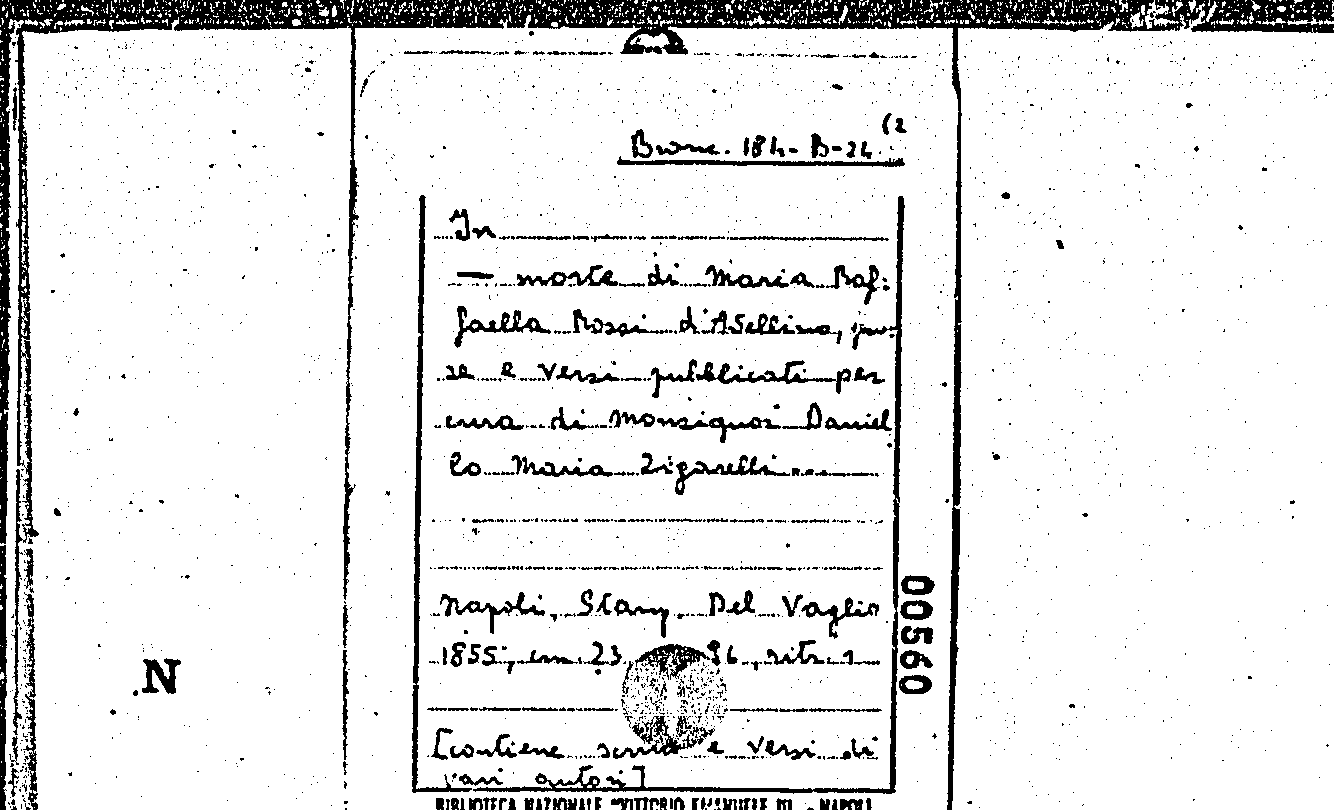 (2
Branc. 184-B-24
In
— morte di Maria Raf-
faella Rossi d'Avellino, pro-
se e versi pubblicati per
cura di Monsignor Daniel
lo Maria Zigarelli...
Napoli, Stamp. Del Vaglio
1855, cm. 23, 96, ritr. 1
[contiene scritti e versi di
vari autori]
BIBLIOTECA NAZIONALE "VITTORIO EMANUELE III" - NAPOLI
00560
N